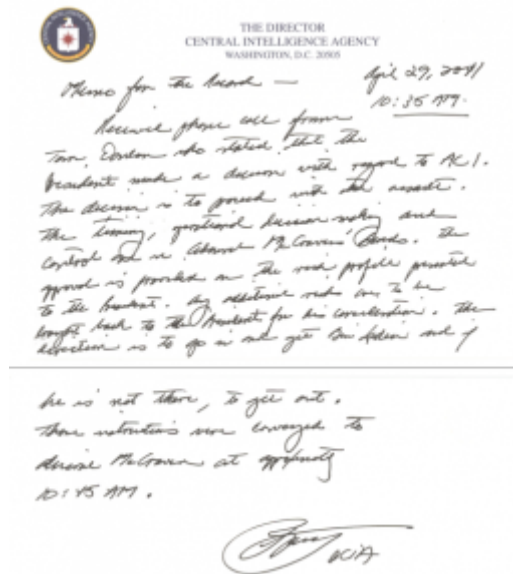 THE DIRECTOR
CENTRAL INTELLIGENCE AGENCY
WASHINGTON, D.C. 20505
Memo for the Record — April 29, 2011
10:35 AM.
Received phone call from
Tom Donilon who stated that the
President made a decision with regard to AC1.
The decision is to proceed with the assault.
The timing, operational decision making and
control are in Admiral McCraven's hands. The
approval is provided on the risk profile presented
to the President. Any additional risks are to be
brought back to the President for his consideration. The
direction is to go in and get Bin Laden and if
he is not there, to get out.
Those instructions were conveyed to
Admiral McCraven at approximately
10:45 AM.
DCIA